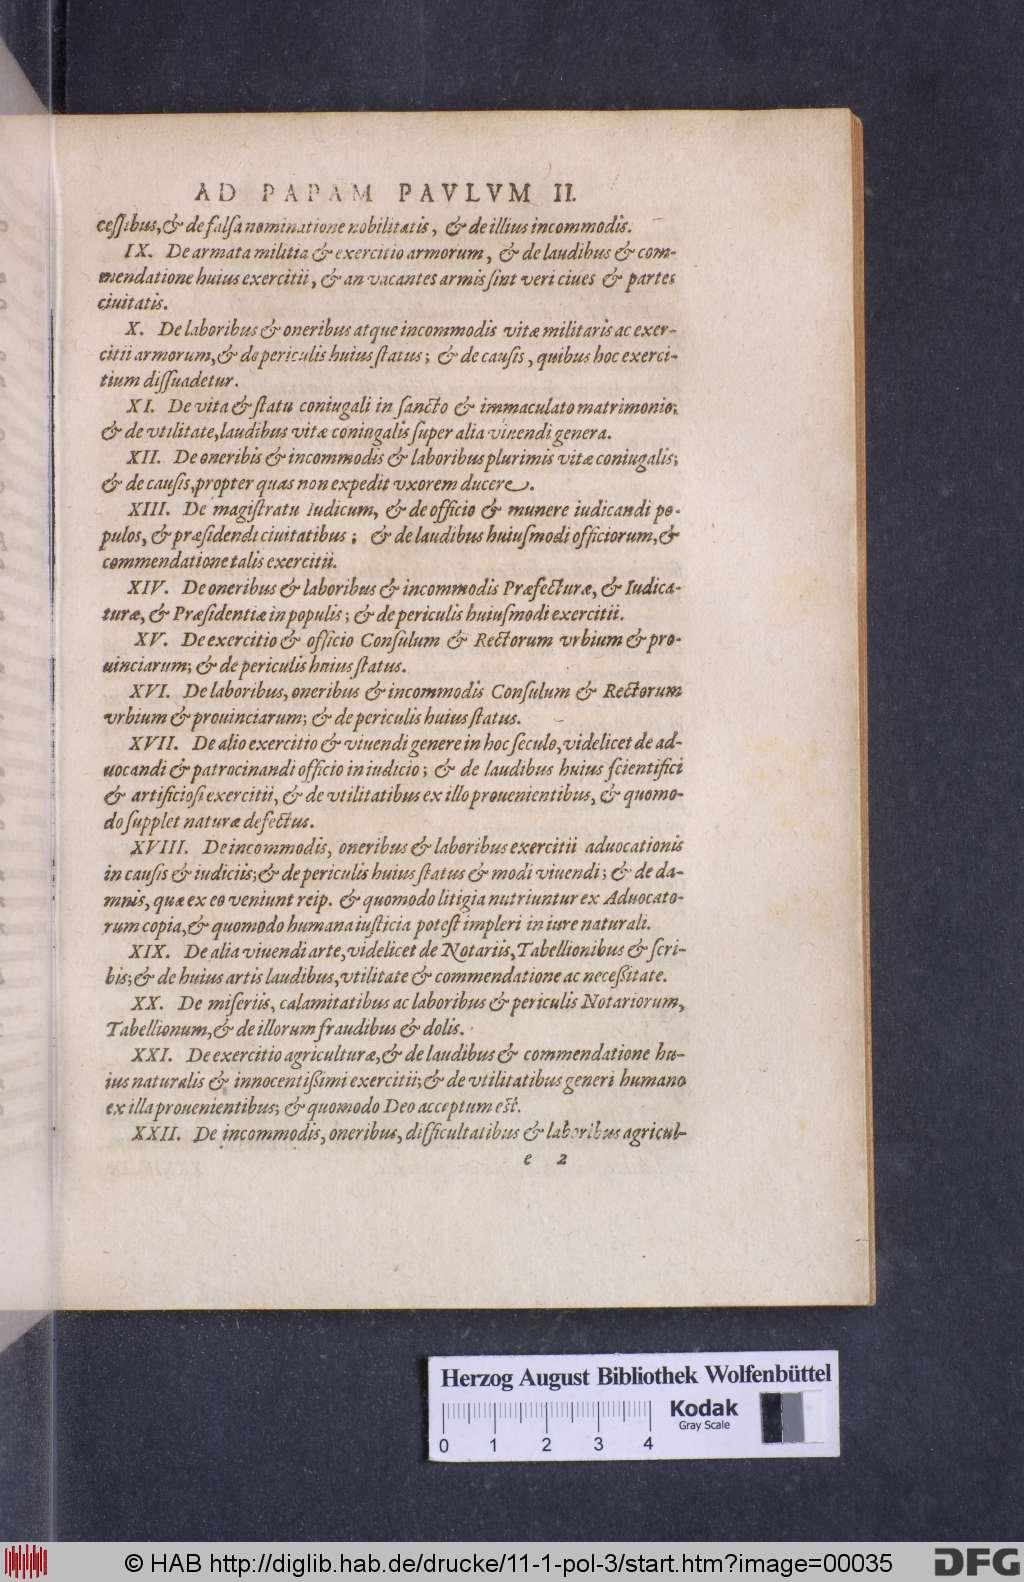 AD PAPAM PAVLVM II.
cessibus, & de falsa nominatione nobilitatis, & de illius incommodis.
IX. De armata militia & exercitio armorum, & de laudibus & com-
mendatione huius exercitii, & an vacantes armis sint veri ciues & partes
ciuitatis.
X. De laboribus & oneribus atque incommodis vitæ militaris ac exer-
citii armorum, & de periculis huius status; & de causis, quibus hoc exerci-
tium dissuadetur.
XI. De vita & statu coniugali in sancto & immaculato matrimonio;
& de vtilitate, laudibus vitæ coniugalis super alia viuendi genera.
XII. De oneribis & incommodis & laboribus plurimis vitæ coniugalis;
& de causis, propter quas non expedit vxorem ducere.
XIII. De magistratu Iudicum, & de officio & munere iudicandi po-
pulos, & præsidendi ciuitatibus; & de laudibus huiusmodi officiorum, &
commendatione talis exercitii.
XIV. De oneribus & laboribus & incommodis Præfecturæ, & Iudica-
turæ, & Præsidentiæ in populis; & de periculis huiusmodi exercitii.
XV. De exercitio & officio Consulum & Rectorum vrbium & pro-
uinciarum; & de periculis huius status.
XVI. De laboribus, oneribus & incommodis Consulum & Rectorum
vrbium & prouinciarum; & de periculis huius status.
XVII. De alio exercitio & viuendi genere in hoc seculo, videlicet de ad-
uocandi & patrocinandi officio in iudicio; & de laudibus huius scientifici
& artificiosi exercitii, & de vtilitatibus ex illo prouenientibus, & quomo-
do supplet naturæ defectus.
XVIII. De incommodis, oneribus & laboribus exercitii aduocationis
in causis & iudiciis; & de periculis huius status & modi viuendi; & de da-
mnis, quæ ex eo veniunt reip. & quomodo litigia nutriuntur ex Aduocato-
rum copia, & quomodo humana iusticia potest impleri in iure naturali.
XIX. De alia viuendi arte, videlicet de Notariis, Tabellionibus & scri-
bis; & de huius artis laudibus, vtilitate & commendatione ac necessitate.
XX. De miseriis, calamitatibus ac laboribus & periculis Notariorum,
Tabellionum, & de illorum fraudibus & dolis.
XXI. De exercitio agriculturæ, & de laudibus & commendatione hu-
ius naturalis & innocentissimi exercitii; & de vtilitatibus generi humano
ex illa prouenientibus; & quomodo Deo acceptum est.
XXII. De incommodis, oneribus, difficultatibus & laboribus agricul-
e 2
Herzog August Bibliothek Wolfenbüttel
0 1 2 3 4
Kodak
Gray Scale
© HAB http://diglib.hab.de/drucke/11-1-pol-3/start.htm?image=00035
DFG